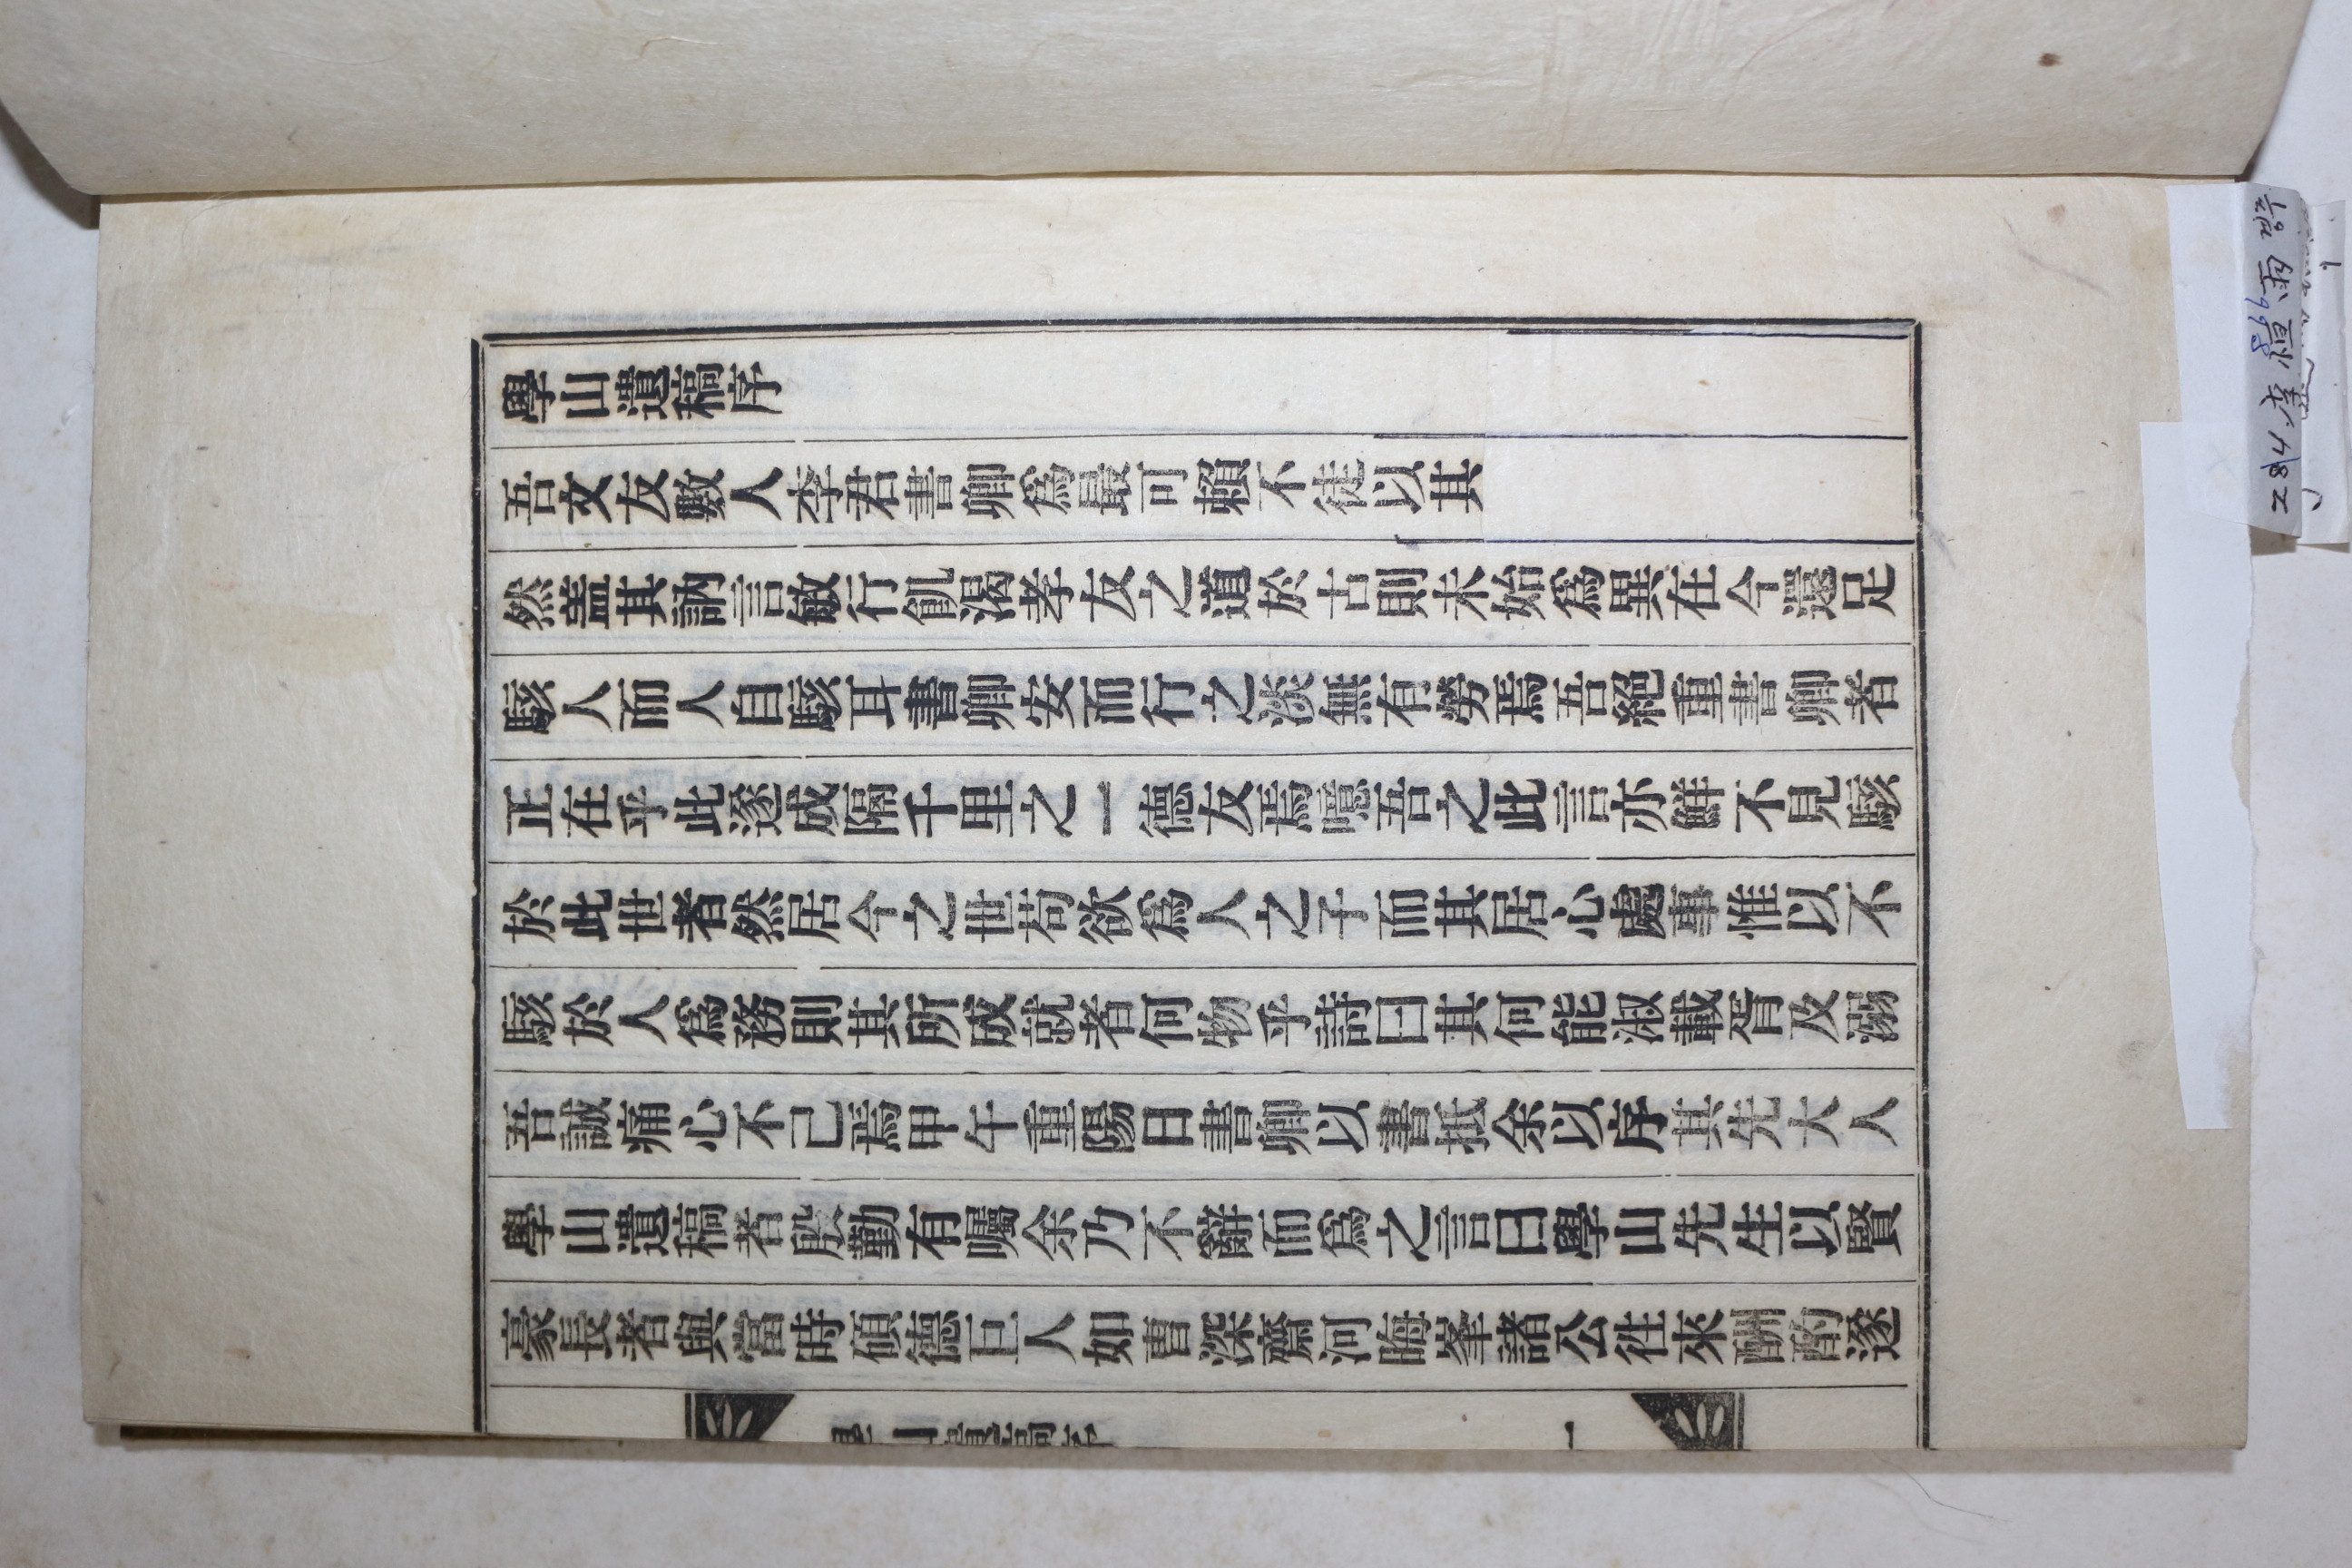 學山遺稿序
吾文友數人李君書卿爲最可賴不徒以其
然盖其訥言敏行飢渴孝友之道於古則未始爲異在今還足
駭人而人自駭耳書卿安而行之淡無有勞焉吾絕重書卿者
正在乎此遂成隔千里之一德友焉噫吾之此言亦鮮不見駭
於此世者然居今之世苟欲爲人之子而其居心處事惟以不
駭於人爲務則其所成就者何物乎詩曰其何能淑載胥及溺
吾誠痛心不己焉甲午重陽日書卿以書抵余以序其先大人
學山遺稿者殷勤有囑余乃不辭而爲之言曰學山先生以賢
豪長者與當時碩德巨人如曺深齋河晦峯諸公徃來酬酌遂
學山遺稿序
一
866
284 李恒雨 경주